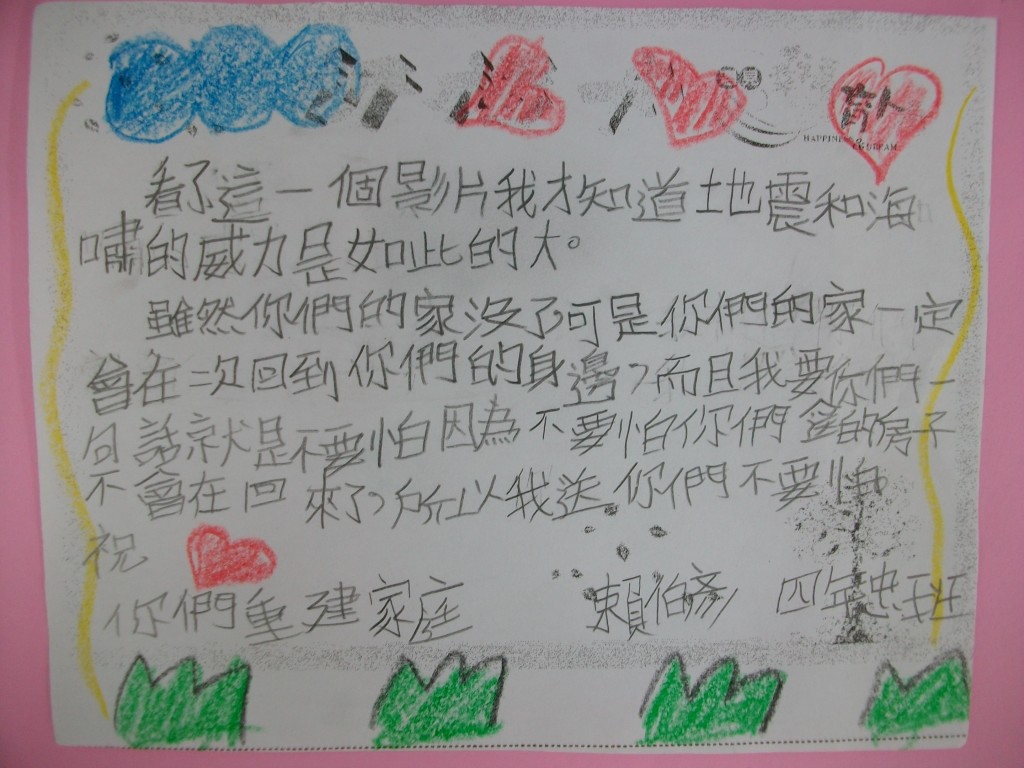 HAPPINE & DREAM
看了這一個影片我才知道土地震和海
嘯的威力是如此的大。
雖然你們的家沒了可是你們的家一定
會在次回到你們的身邊,而且我要你們一
句話就是不要怕因為不要怕你們的房子
不會在回來了,所以我送你們不要怕。
祝
你們重建家庭
賴伯彥 四年忠班